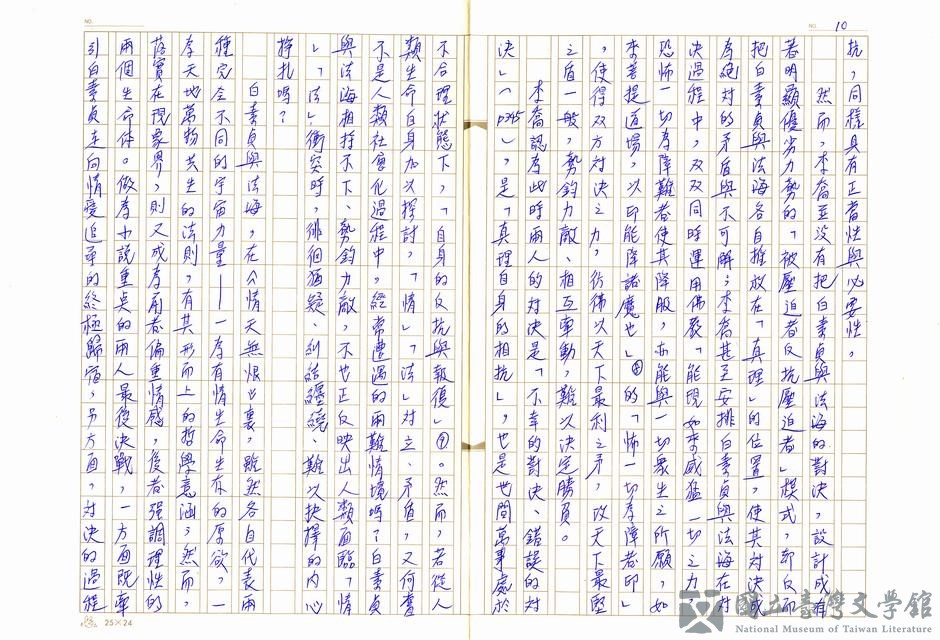 NO. 10
抗，同樣具有正當性與必要性。
然而，李喬並沒有把白素貞與法海的對決，設計成有
著明顯優劣力勢的「被壓迫者反抗壓迫者」模式，卻反而
把白素貞與法海各自推放在「真理」的位置，使其對決成
為絕對的矛盾與不可解；李喬甚至安排白素貞與法海在對
決過程中，双双同時運用佛家「能現如來威猛一切之力，
恐怖一切為障難者使其降服，亦能與一切衆生之所願，如
來菩提道場，以印能降諸魔也」㊃的「怖一切為障者印」
，使得双方對決之力，彷彿以天下最利之矛，攻天下最堅
之盾一般，勢鈞力敵、相互牽動，難以決定勝負。
李喬認為此時兩人的對決是「不幸的對決、錯誤的對
決」（P395），是「真理自身的相抗」，也是世間萬事處於
NO.
不合理狀態下，「自身的反抗與報復」。然而，若從人
類生命自身加以探討，「情」「法」對立、矛盾，又何嘗
不是人類社會化過程中，經常遭遇的兩難情境嗎？白素貞
與法海相持不下、勢鈞力敵，不也正反映出人類面臨「情
」「法」衝突時，徘徊猶疑、糾結纏繞、難以抉擇的內心
掙扎嗎？
白素貞與法海，在分情天無恨世裏，雖然各自代表兩
種完全不同的宇宙力量——一為有情生命生存的原欲，一
為天地萬物共生的法則，有其形而上的哲學意涵；然而，
落實在現象界，則又成為前者偏重情感，後者強調理性的
兩個生命体。做為小說重點的兩人最後決戰，一方面既牽
引白素貞走向情愛追尋的終極歸宿，另方面，對決的過程
25×24
國立臺灣文學館
National Museum of Taiwan Literature